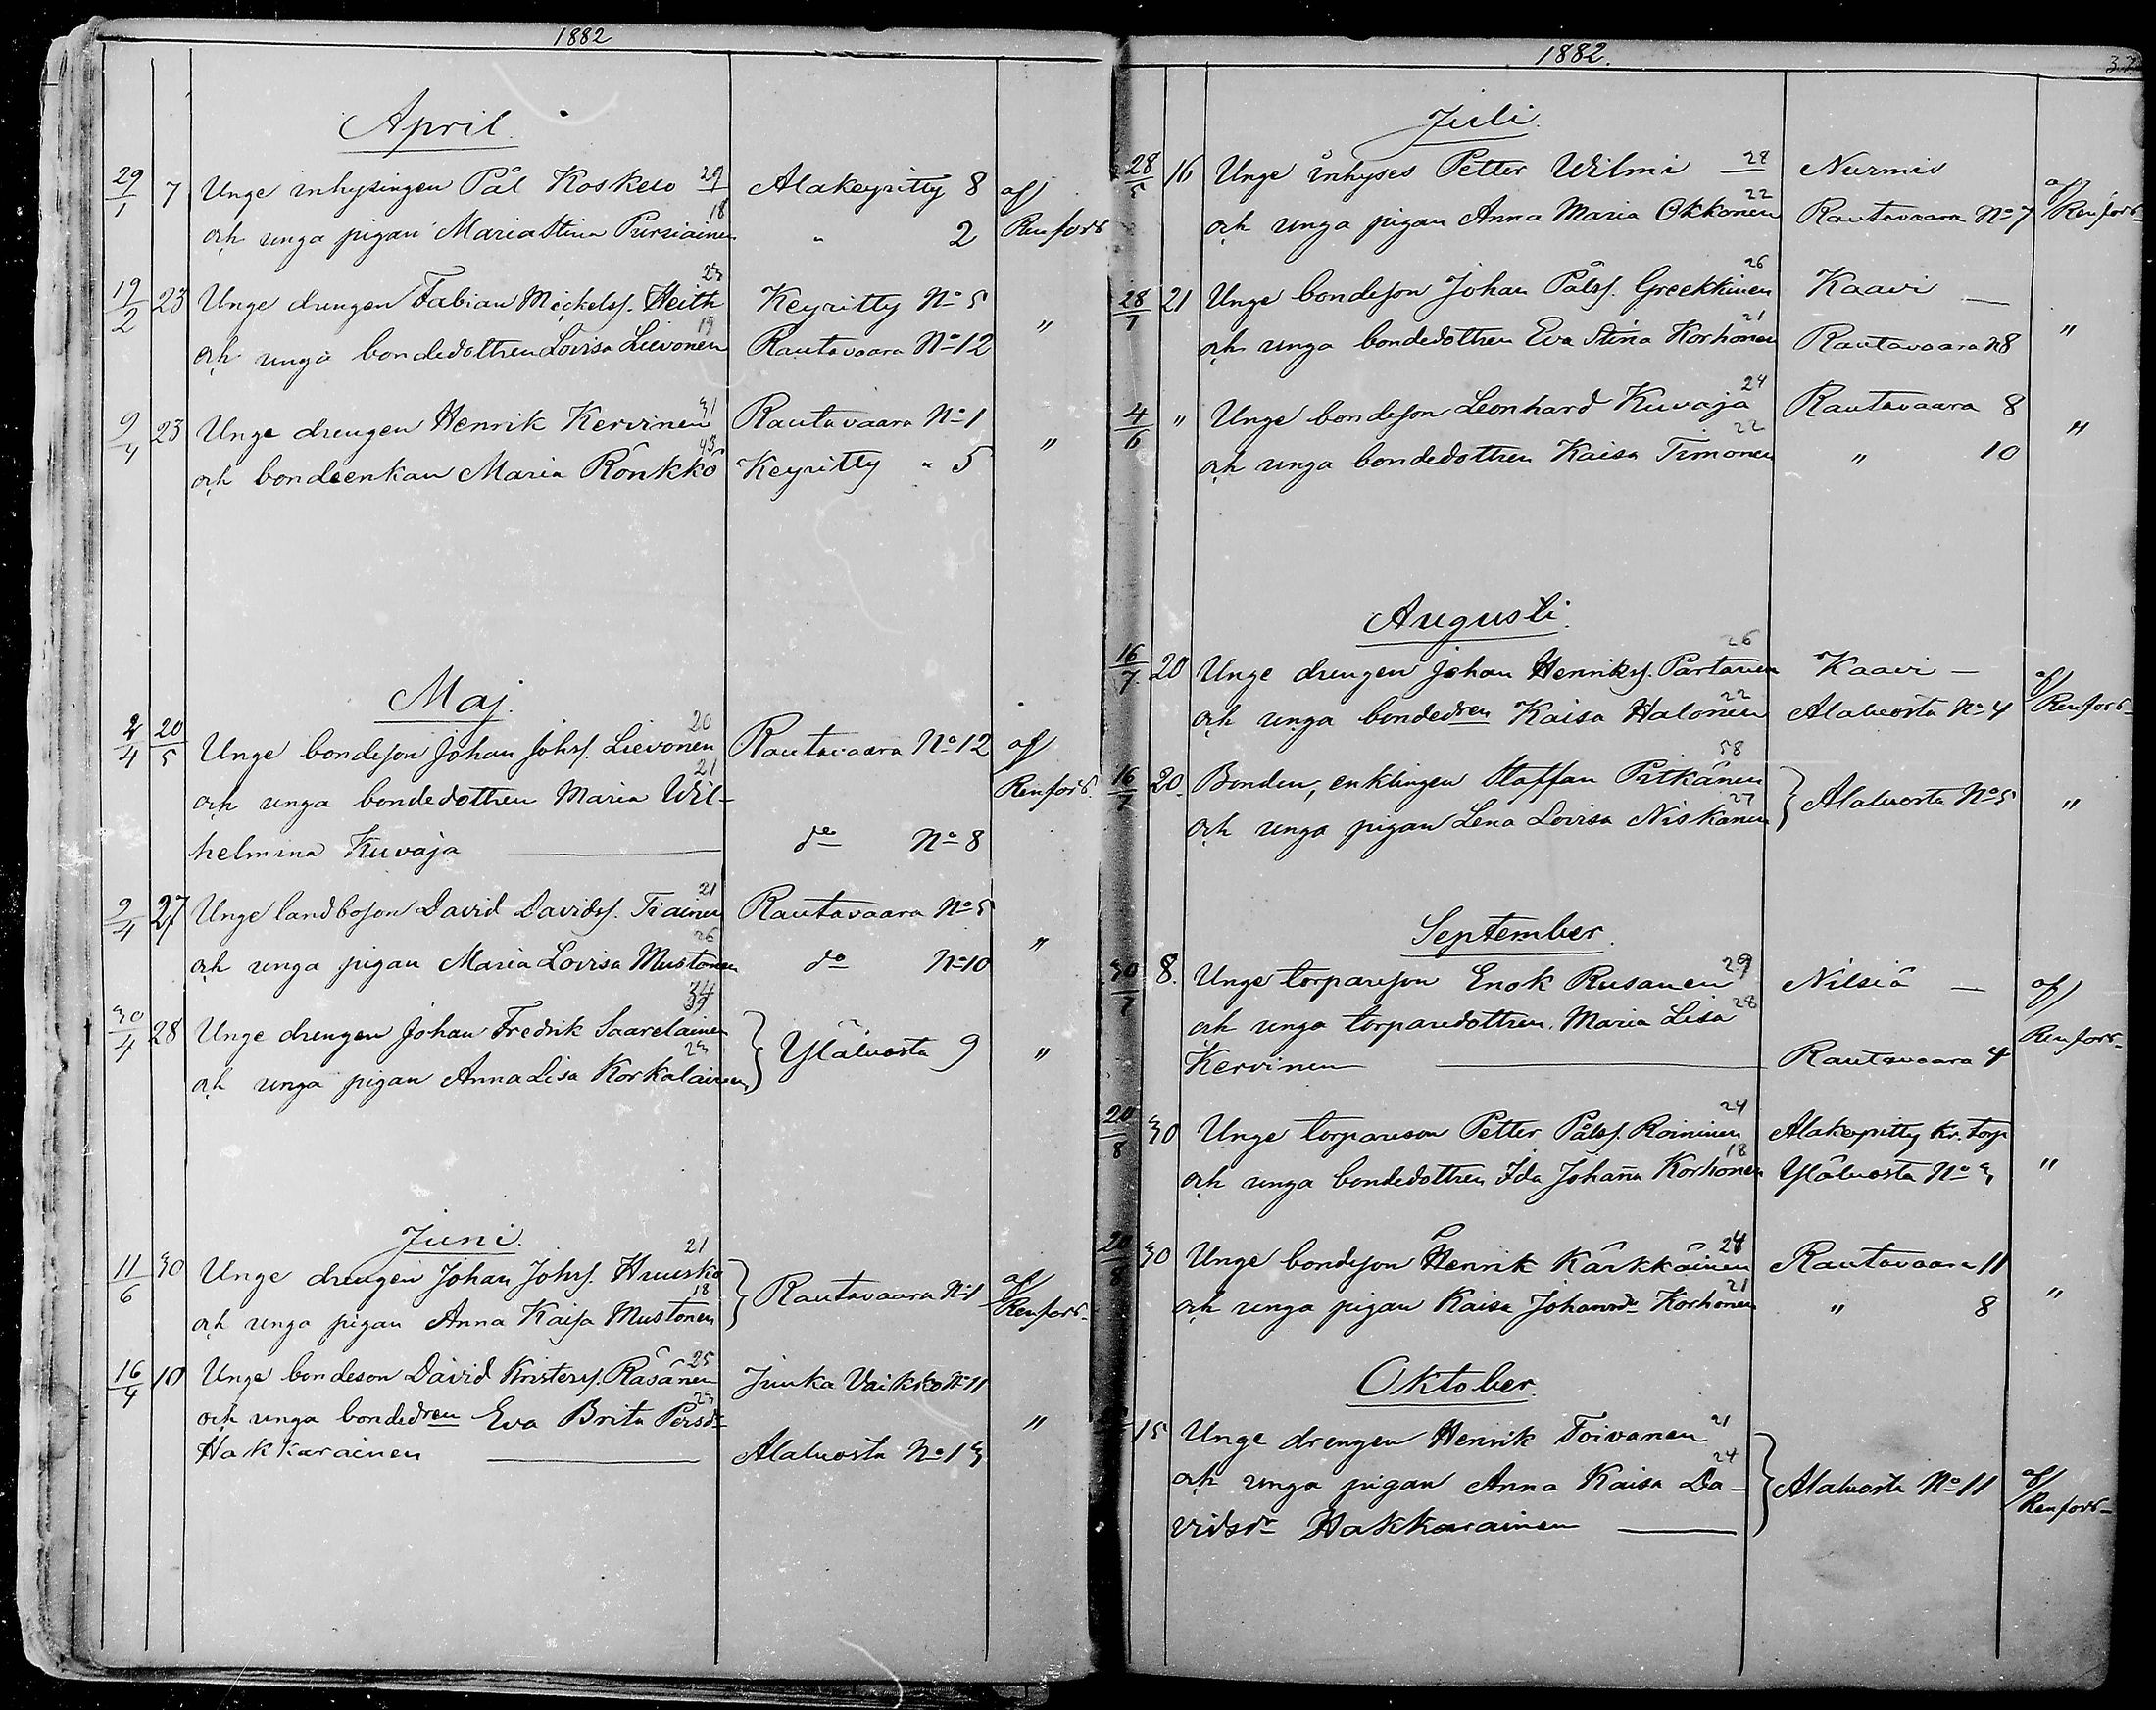 1882
April.
29/1 7 Unge inhysingen Pål Koskelo 29 Alakeyritty 8 af
och unga pigan Maria Stina Pursiainen 18 " 2 Renfors
19/2 23 Unge drengen Fabian Michelss. Heith 23 Keyritty No 5
och unga bondedottren Lovisa Lievonen 19 Rautavaara No 12 "
9/4 23 Unge drengen Henrik Kervinen 31 Rautavaara No 1
och bondeenkan Maria Rönkkö 43 Keyritty " 5 "
Maj.
2/4 20/5 Unge bondeson Johan Johss. Lievonen 20 Rautavaara No 12 af
och unga bondedottren Maria Wil- 21 Renfors.
helmina Kuvaja do No 8
9/4 27 Unge landboson David Davidss. Tiainen 21 Rautavaara No 5
och unga pigan Maria Lovisa Mustonen 26 do No 10 "
30/4 28 Unge drengen Johan Fredrik Saarelainen 34 Yläluosta 9 "
och unga pigan Anna Lisa Korkalainen 23
Juni.
11/6 30 Unge drengen Johan Johss. Huusko 21 Rautavaara No 1 af
och unga pigan Anna Kaisa Mustonen 18 Renfors.
16/4 10 Unge bondeson David Kristerss. Räsänen 25 Juuka Vaikko No 11
och unga bondedren Eva Brita Persdr 23 "
Hakkarainen Alaluosta No 13
1882. 37
Juli.
28/5 16 Unge inhyses Petter Wilmi 28 Nurmis af
och unga pigan Anna Maria Okkonen 22 Rautavaara No 7 Renfors
28/7 21 Unge bondeson Johan Pålss. Greekkinen 26 Kaavi —
och unga bondedottren Eva Stina Korhonen 21 Rautavaara No 8 "
4/6 " Unge bondeson Leonhard Kuvaja 24 Rautavaara 8
och unga bondedottren Kaisa Timonen 22 " 10 "
Augusti.
16/7 20 Unge drengen Johan Henrikss. Partanen 26 Kaavi — af
och unga bondedren Kaisa Halonen 22 Alaluosta No 4 Renfors
16/7 20. Bonden, enklingen Staffan Pitkänen 58 Alaluosta No 5 "
och unga pigan Lena Lovisa Niskanen 27
September.
30/7 8. Unge torpareson Enok Rusanen 29 Nilsiä — af
och unga torparedottren Maria Lisa 28 Renfors
Kervinen Rautavaara 4
20/8 30 Unge torpareson Petter Pålss. Roininen 24 Alakeyritty Kr. torp
och unga bondedottren Ida Johana Korhonen 18 Yläluosta No 3 "
20/8 30 Unge bondeson Henrik Kärkkäinen 24 Rautavaara 11
och unga pigan Kaisa Johansdr Korhonen 21 " 8 "
Oktober.
15 Unge drengen Henrik Toivanen 21
och unga pigan Anna Kaisa Da- 24 Alaluosta No 11 af
vidsdr Hakkarainen Renfors